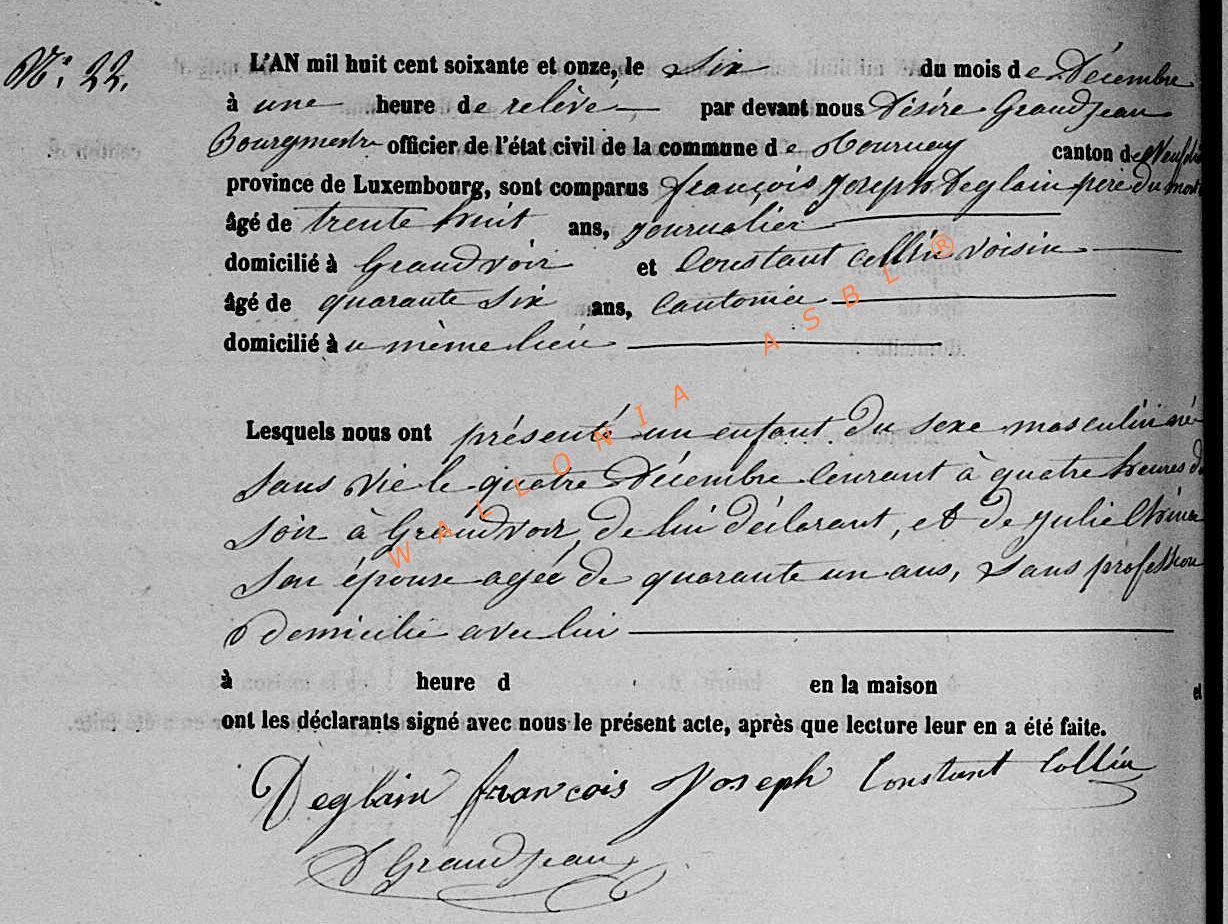 Nº 22.
L'AN mil huit cent soixante et onze, le six du mois de Décembre
à une heure de relevé par devant nous Désiré Grandjean
Bourgmestre officier de l'état civil de la commune de Tournay canton de Neufch
province de Luxembourg, sont comparus françois Joseph Deglain père du mort
âgé de trente huit ans, journalier
domicilié à Grandvoir et Constant Collin voisin
âgé de quarante six ans, Cantonier
domicilié à u même lieu
Lesquels nous ont présenté un enfant du sexe masculin né
sans vie le quatre Décembre courant à quatre heures du
soir à Grandvoir, de lui déclarant, et de Julie
son épouse agée de quarante un ans, sans profession
Domicilié avec lui
à heure d en la maison
ont les déclarants signé avec nous le présent acte, après que lecture leur en a été faite.
Deglain françois Joseph Constant Collin
D Grandjean
WALLONIA ASBL ®